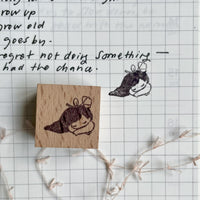 row up
grow old
goes by.
regret not doing something —
had the chance.